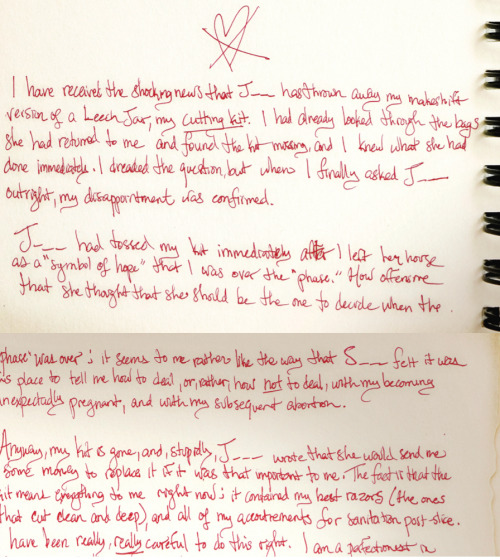 I have received the shocking news that J___ has thrown away my makeshift
version of a Leech Jar, my cutting kit. I had already looked through the bags
she had returned to me and found the kit missing, and I knew what she had
done immediately. I dreaded the question, but when I finally asked J___
outright, my disappointment was confirmed.
J___ had tossed my kit immediately after I left her house
as a "symbol of hope" that I was over the "phase." How offensive
that she thought that she should be the one to decide when the
phase' was over; it seems to me rather like the way that S___ felt it was
is place to tell me how to deal, or, rather, how not to deal, with my becoming
unexpectedly pregnant, and with my subsequent abortion.
Anyway, my kit is gone, and, stupidly, J___ wrote that she would send me
some money to replace it if it was that important to me. The fact is that the
kit meant everything to me right now; it contained my best razors (the ones
that cut clean and deep), and all of my accoutrements for sanitation post-slice.
I have been really, really careful to do this right. I am a perfectionist in